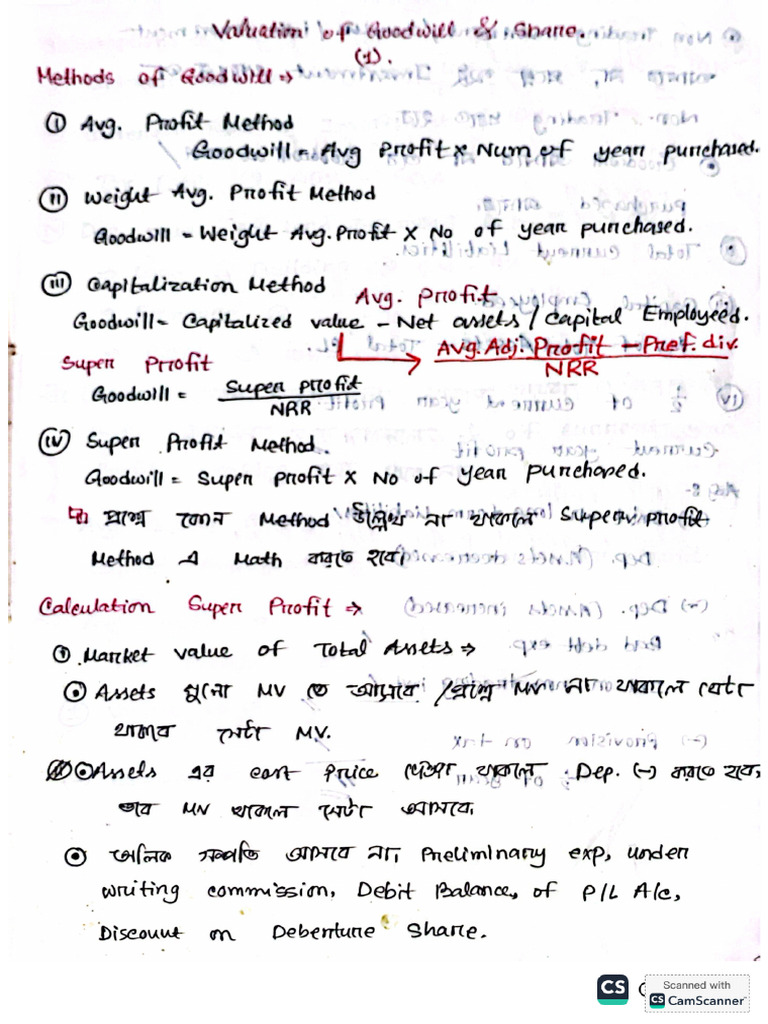 Valuation of Goodwill & Share.
(1).
Methods of Goodwill →
(i) Avg. Profit Method
Goodwill = Avg Profit x Num of year purchased.
(ii) Weight Avg. Profit Method
Goodwill = Weight Avg. Profit X No of year purchased.
(iii) Capitalization Method
Avg. Profit
Goodwill = Capitalized value - Net assets / Capital Employeed.
Avg. Adj. Profit - Pref. div.
NRR
Super Profit
Goodwill = Super profit
NRR
(iv) Super Profit Method.
Goodwill = Super Profit X No of year Purchased.
প্রশ্নে কোন Method উল্লেখ না থাকলে Super profit
Method এ Math করতে হবে।
Calculation Super Profit →
(i) Market value of Total Assets →
Assets গুলো MV তে আসবে / প্রশ্নে MV না থাকলে যেটা
থাকবে সেটা MV.
Assets এর cost Price দেওয়া থাকলে Dep. (-) করতে হবে,
তবে MV থাকলে সেটা আসবে।
অলিক সম্পত্তি আসবে না, Preliminary exp, under
writing commission, Debit Balance, of P/L A/c,
Discount on Debenture Share.
CS
Scanned with
CS CamScanner